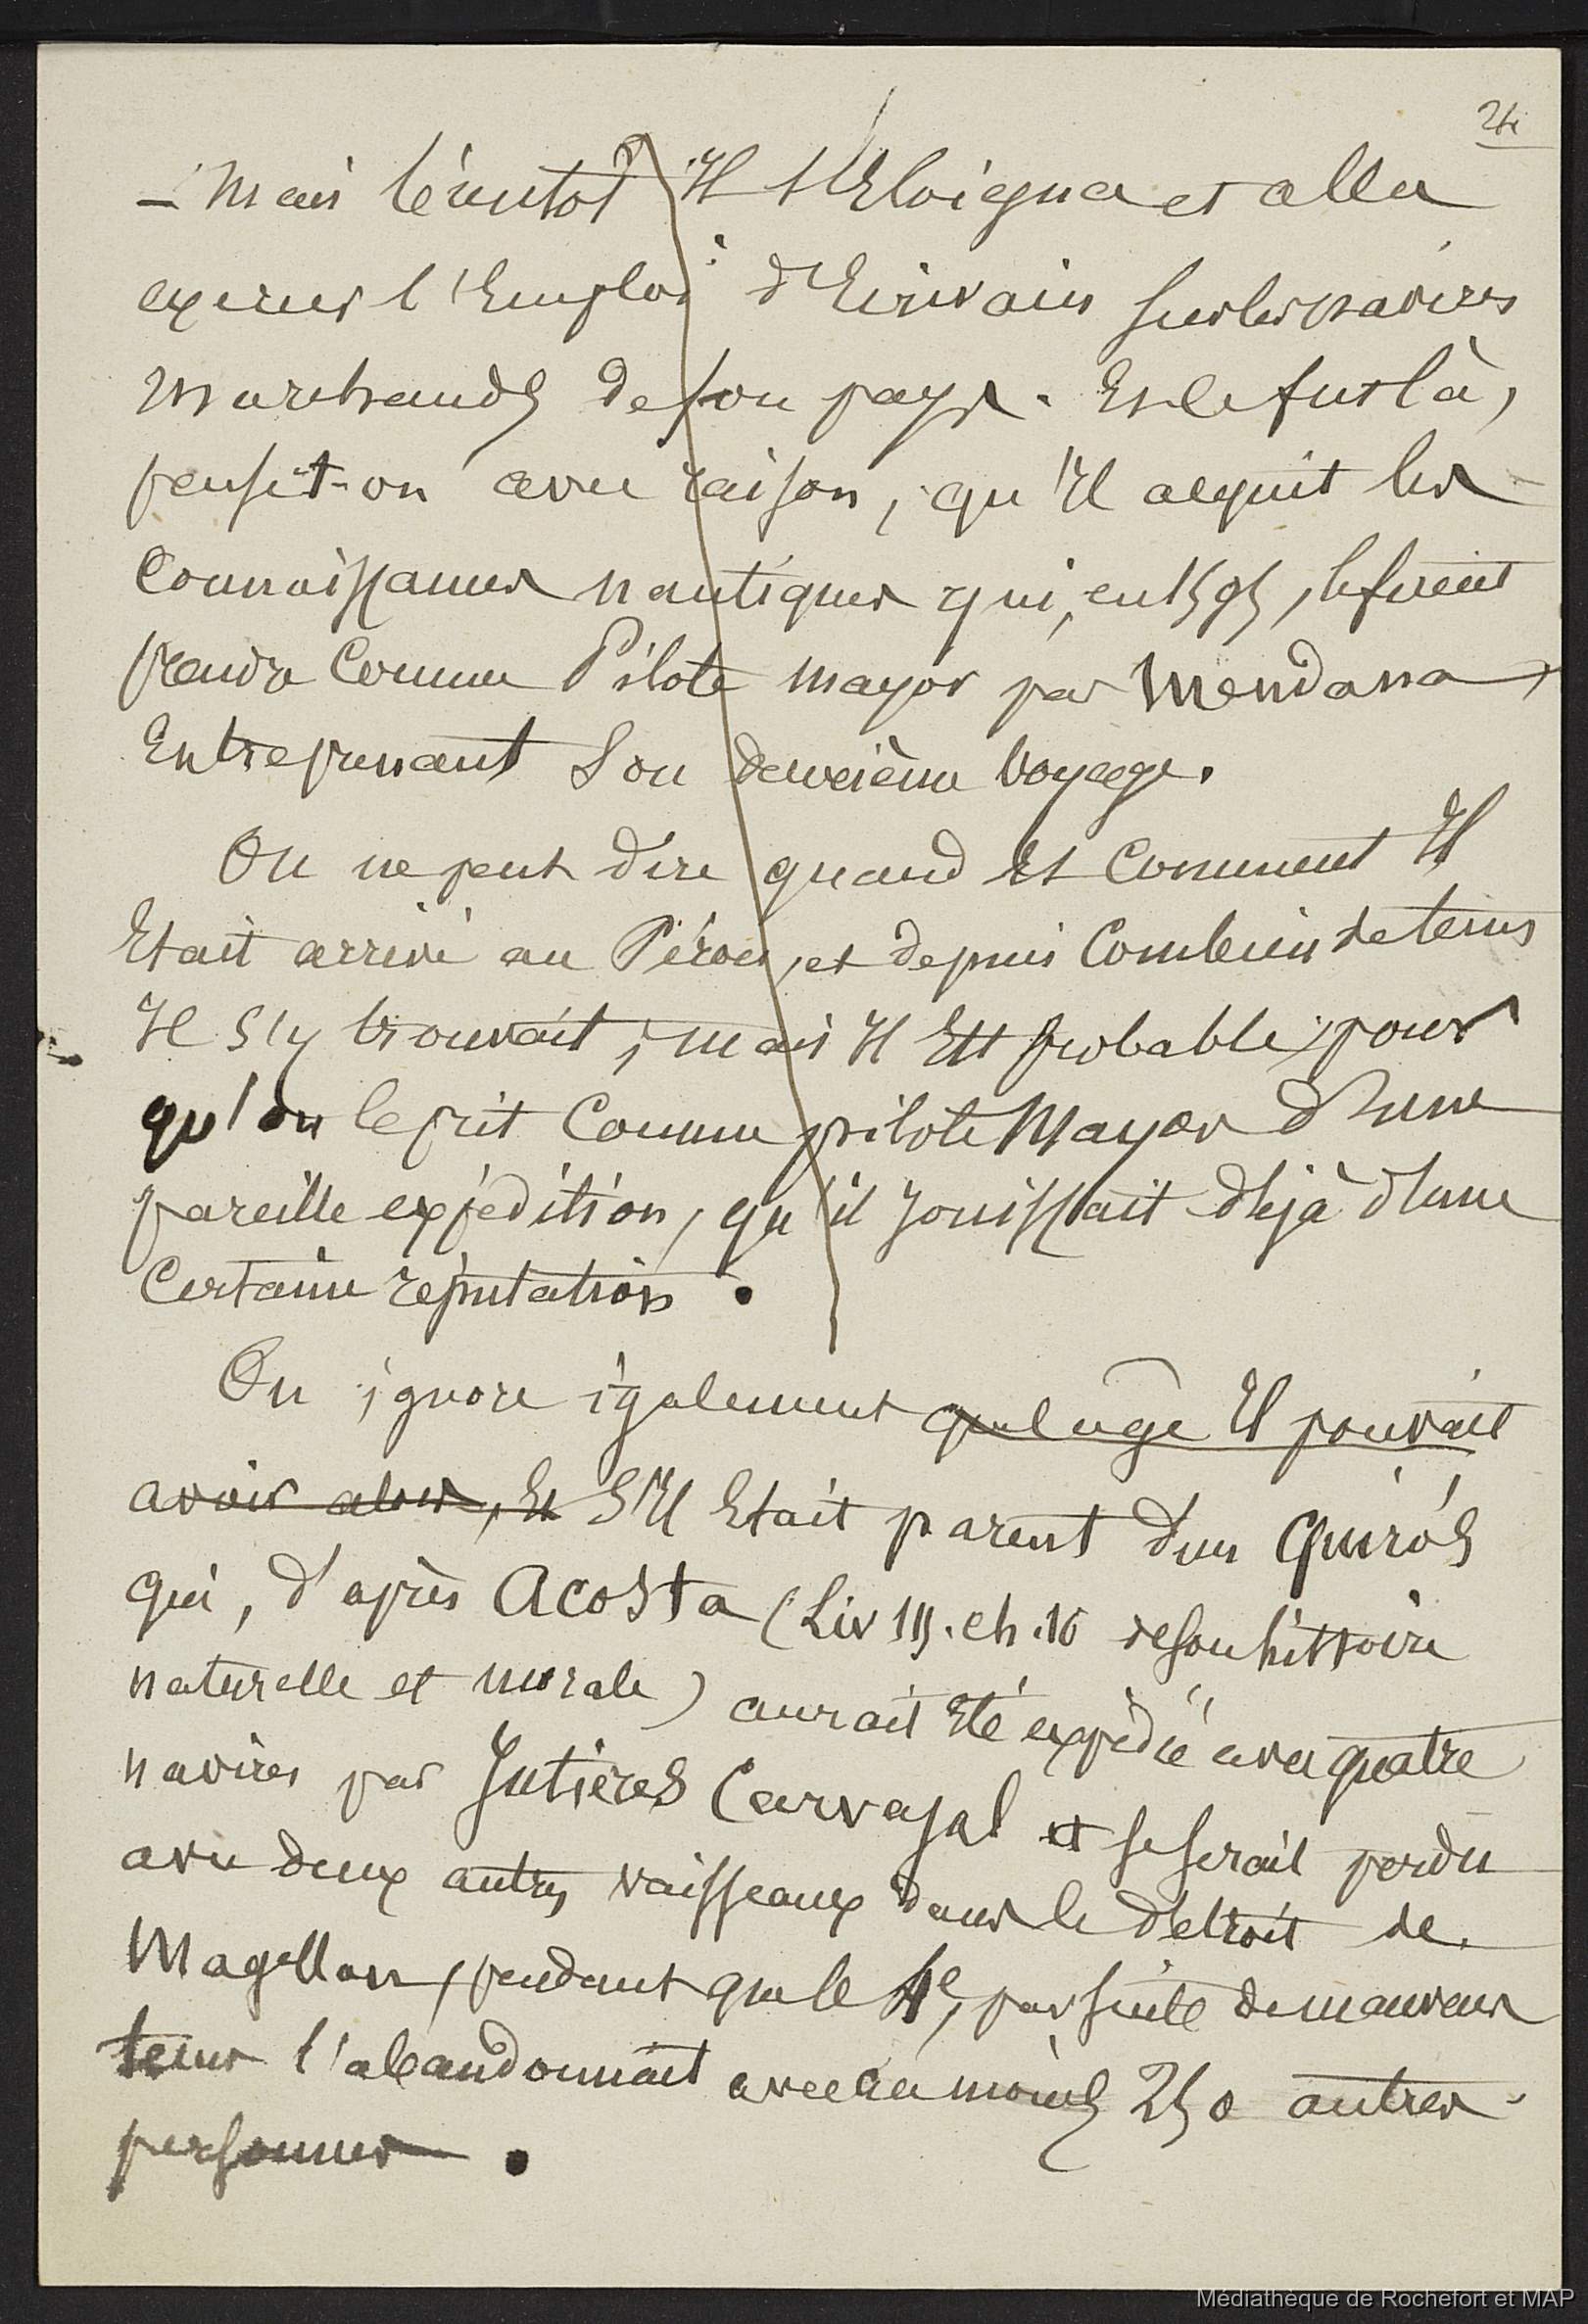 24
— Mais bientôt Il s'Eloigna et alla
exercer l'Emploi d'Ecrivain sur les navires
Marchands de son pays. Et ce fut là,
pensit-on avec raison, qu'Il acquit les
Connaissances nautiques qui, en 1595, le firent
prendre Comme Pilote mayor par Mendana,
Entreprenant Son deuxième Voyage.
On ne peut dire quand Et Comment Il
Etait arrivé au Pérou, et depuis Combien de tems
Il s'y trouvait ; mais Il Est probable, pour
qu'on le prit Comme pilote Mayor d'une
pareille expédition, qu'il Jouissait déjà d'une
Certaine réputation.
On ignore également quel age Il pouvait
avoir alors, Et S'Il Etait parent d'un Quirós
qui, d'après Acosta (Liv III. ch. 10 de son histoire
naturelle et morale) aurait Eté expédié avec quatre
navires par Gutières Carvajal et se serait perdu
avec deux autres vaisseaux dans le Détroit de
Magellan, pendant que le 4e, par suite de mauvais
tems l'abandonnait avec au moins 250 autres
personnes.
Médiathèque de Rochefort et MAP